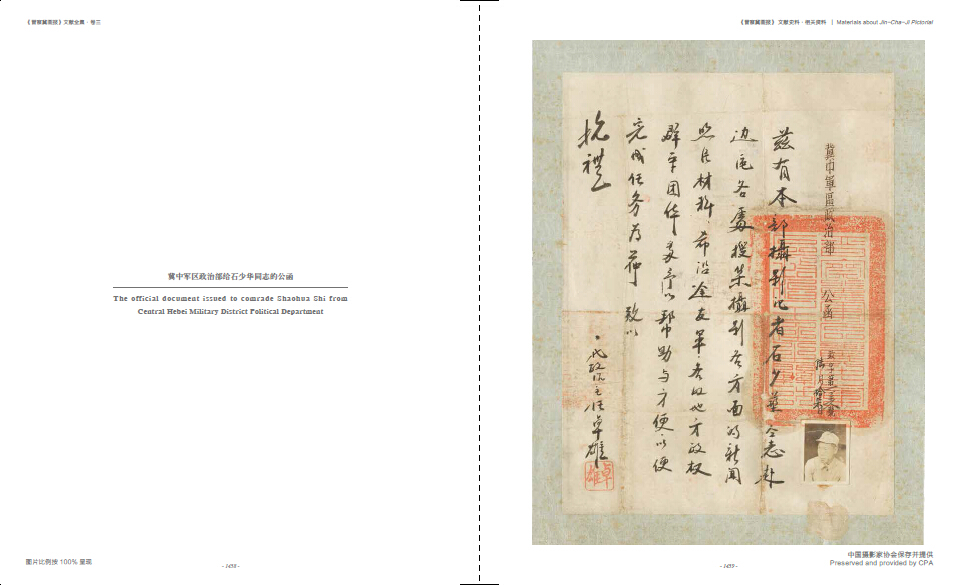 《晋察冀画报》文献全集·卷三
冀中军区政治部给石少华同志的公函
The official document issued to comrade Shaohua Shi from
Central Hebei Military District Political Department
图片比例按 100% 呈现
- 1458 -
《晋察冀画报》文献史料·相关资料 | Materials about Jin-Cha-Ji Pictorial
冀中軍區政治部 公函
茲有本部攝影记者石少華仝志赴
边區各處搜集攝影各方面的新聞
照片材料.希沿途友軍.各級地方政权
群众团体多予以帮助与方便以便
完成任务为荷 致以
抗礼
代政治主任卓雄
卓雄
中国摄影家协会保存并提供
Preserved and provided by CPA
- 1459 -